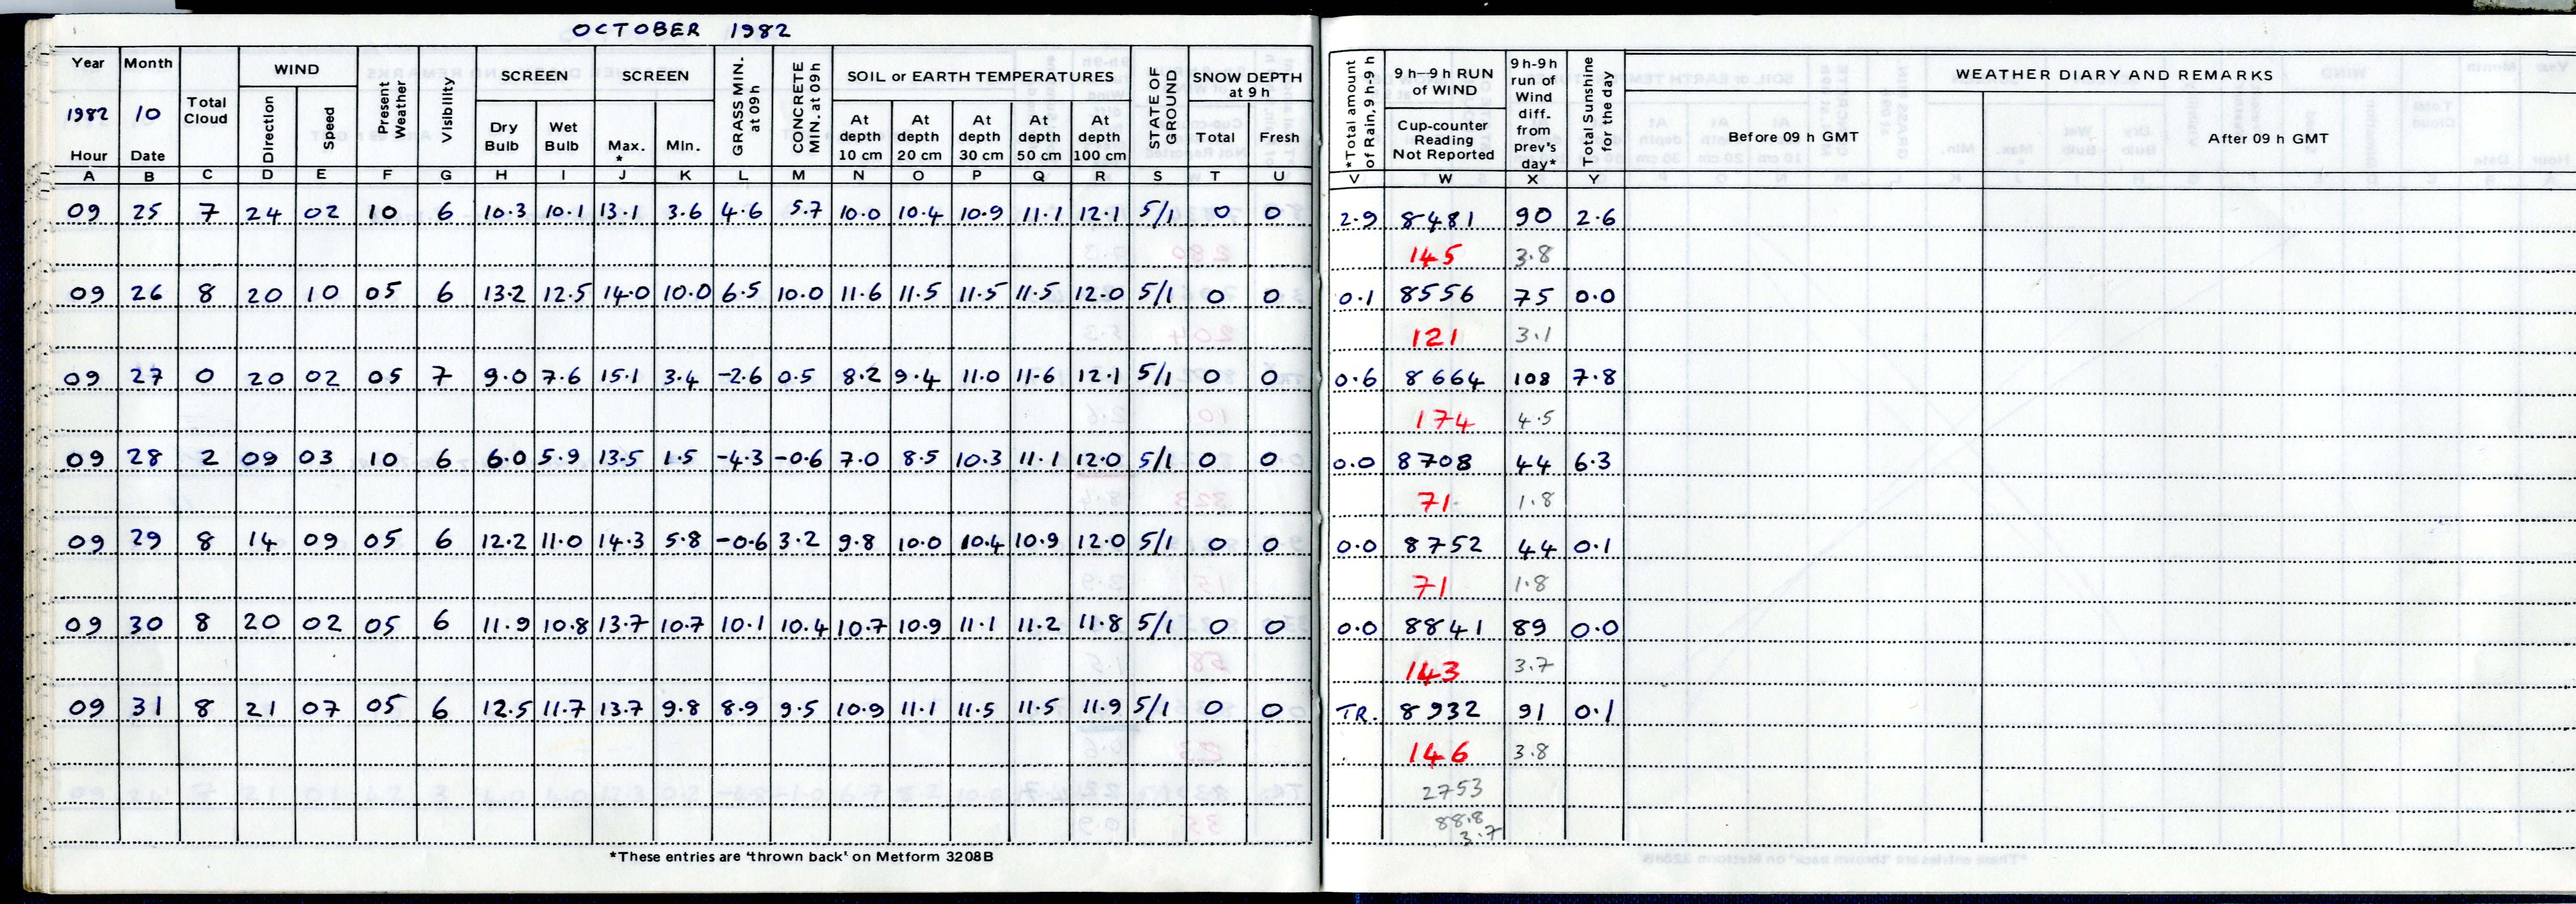 OCTOBER 1982
Year Month WIND SCREEN SCREEN SOIL or EARTH TEMPERATURES SNOW DEPTH at 9 h
1982 10 Total Cloud Direction Speed Present Weather Visibility Dry Bulb Wet Bulb Max. * Min. GRASS MIN. at 09h CONCRETE MIN. at 09h At depth 10 cm At depth 20 cm At depth 30 cm At depth 50 cm At depth 100 cm STATE OF GROUND Total Fresh
Hour Date
*Total amount of Rain, 9 h-9 h 9 h—9 h RUN of WIND Cup-counter Reading Not Reported 9h-9h run of Wind diff. from prev's day* Total Sunshine for the day WEATHER DIARY AND REMARKS
Before 09 h GMT After 09 h GMT
A B C D E F G H I J K L M N O P Q R S T U V W X Y
09 25 7 24 02 10 6 10.3 10.1 13.1 3.6 4.6 5.7 10.0 10.4 10.9 11.1 12.1 5/1 0 0 2.9 8481 90 2.6
145 3.8
09 26 8 20 10 05 6 13.2 12.5 14.0 10.0 6.5 10.0 11.6 11.5 11.5 11.5 12.0 5/1 0 0 0.1 8556 75 0.0
121 3.1
09 27 0 20 02 05 7 9.0 7.6 15.1 3.4 -2.6 0.5 8.2 9.4 11.0 11.6 12.1 5/1 0 0 0.6 8664 108 7.8
174 4.5
09 28 2 09 03 10 6 6.0 5.9 13.5 1.5 -4.3 -0.6 7.0 8.5 10.3 11.1 12.0 5/1 0 0 0.0 8708 44 6.3
71 1.8
09 29 8 14 09 05 6 12.2 11.0 14.3 5.8 -0.6 3.2 9.8 10.0 10.4 10.9 12.0 5/1 0 0 0.0 8752 44 0.1
71 1.8
09 30 8 20 02 05 6 11.9 10.8 13.7 10.7 10.1 10.4 10.7 10.9 11.1 11.2 11.8 5/1 0 0 0.0 8841 89 0.0
143 3.7
09 31 8 21 07 05 6 12.5 11.7 13.7 9.8 8.9 9.5 10.9 11.1 11.5 11.5 11.9 5/1 0 0 TR. 8932 91 0.1
146 3.8
2753
88.8
3.7
*These entries are 'thrown back' on Metform 3208B